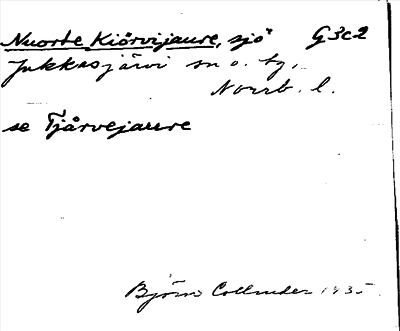 Nuorte Kiörvijaure, sjö G3c2
Jukkasjärvi sn o. tg,
Norrb. l.
se Tjårvejaure
Björn Collinder 1935.